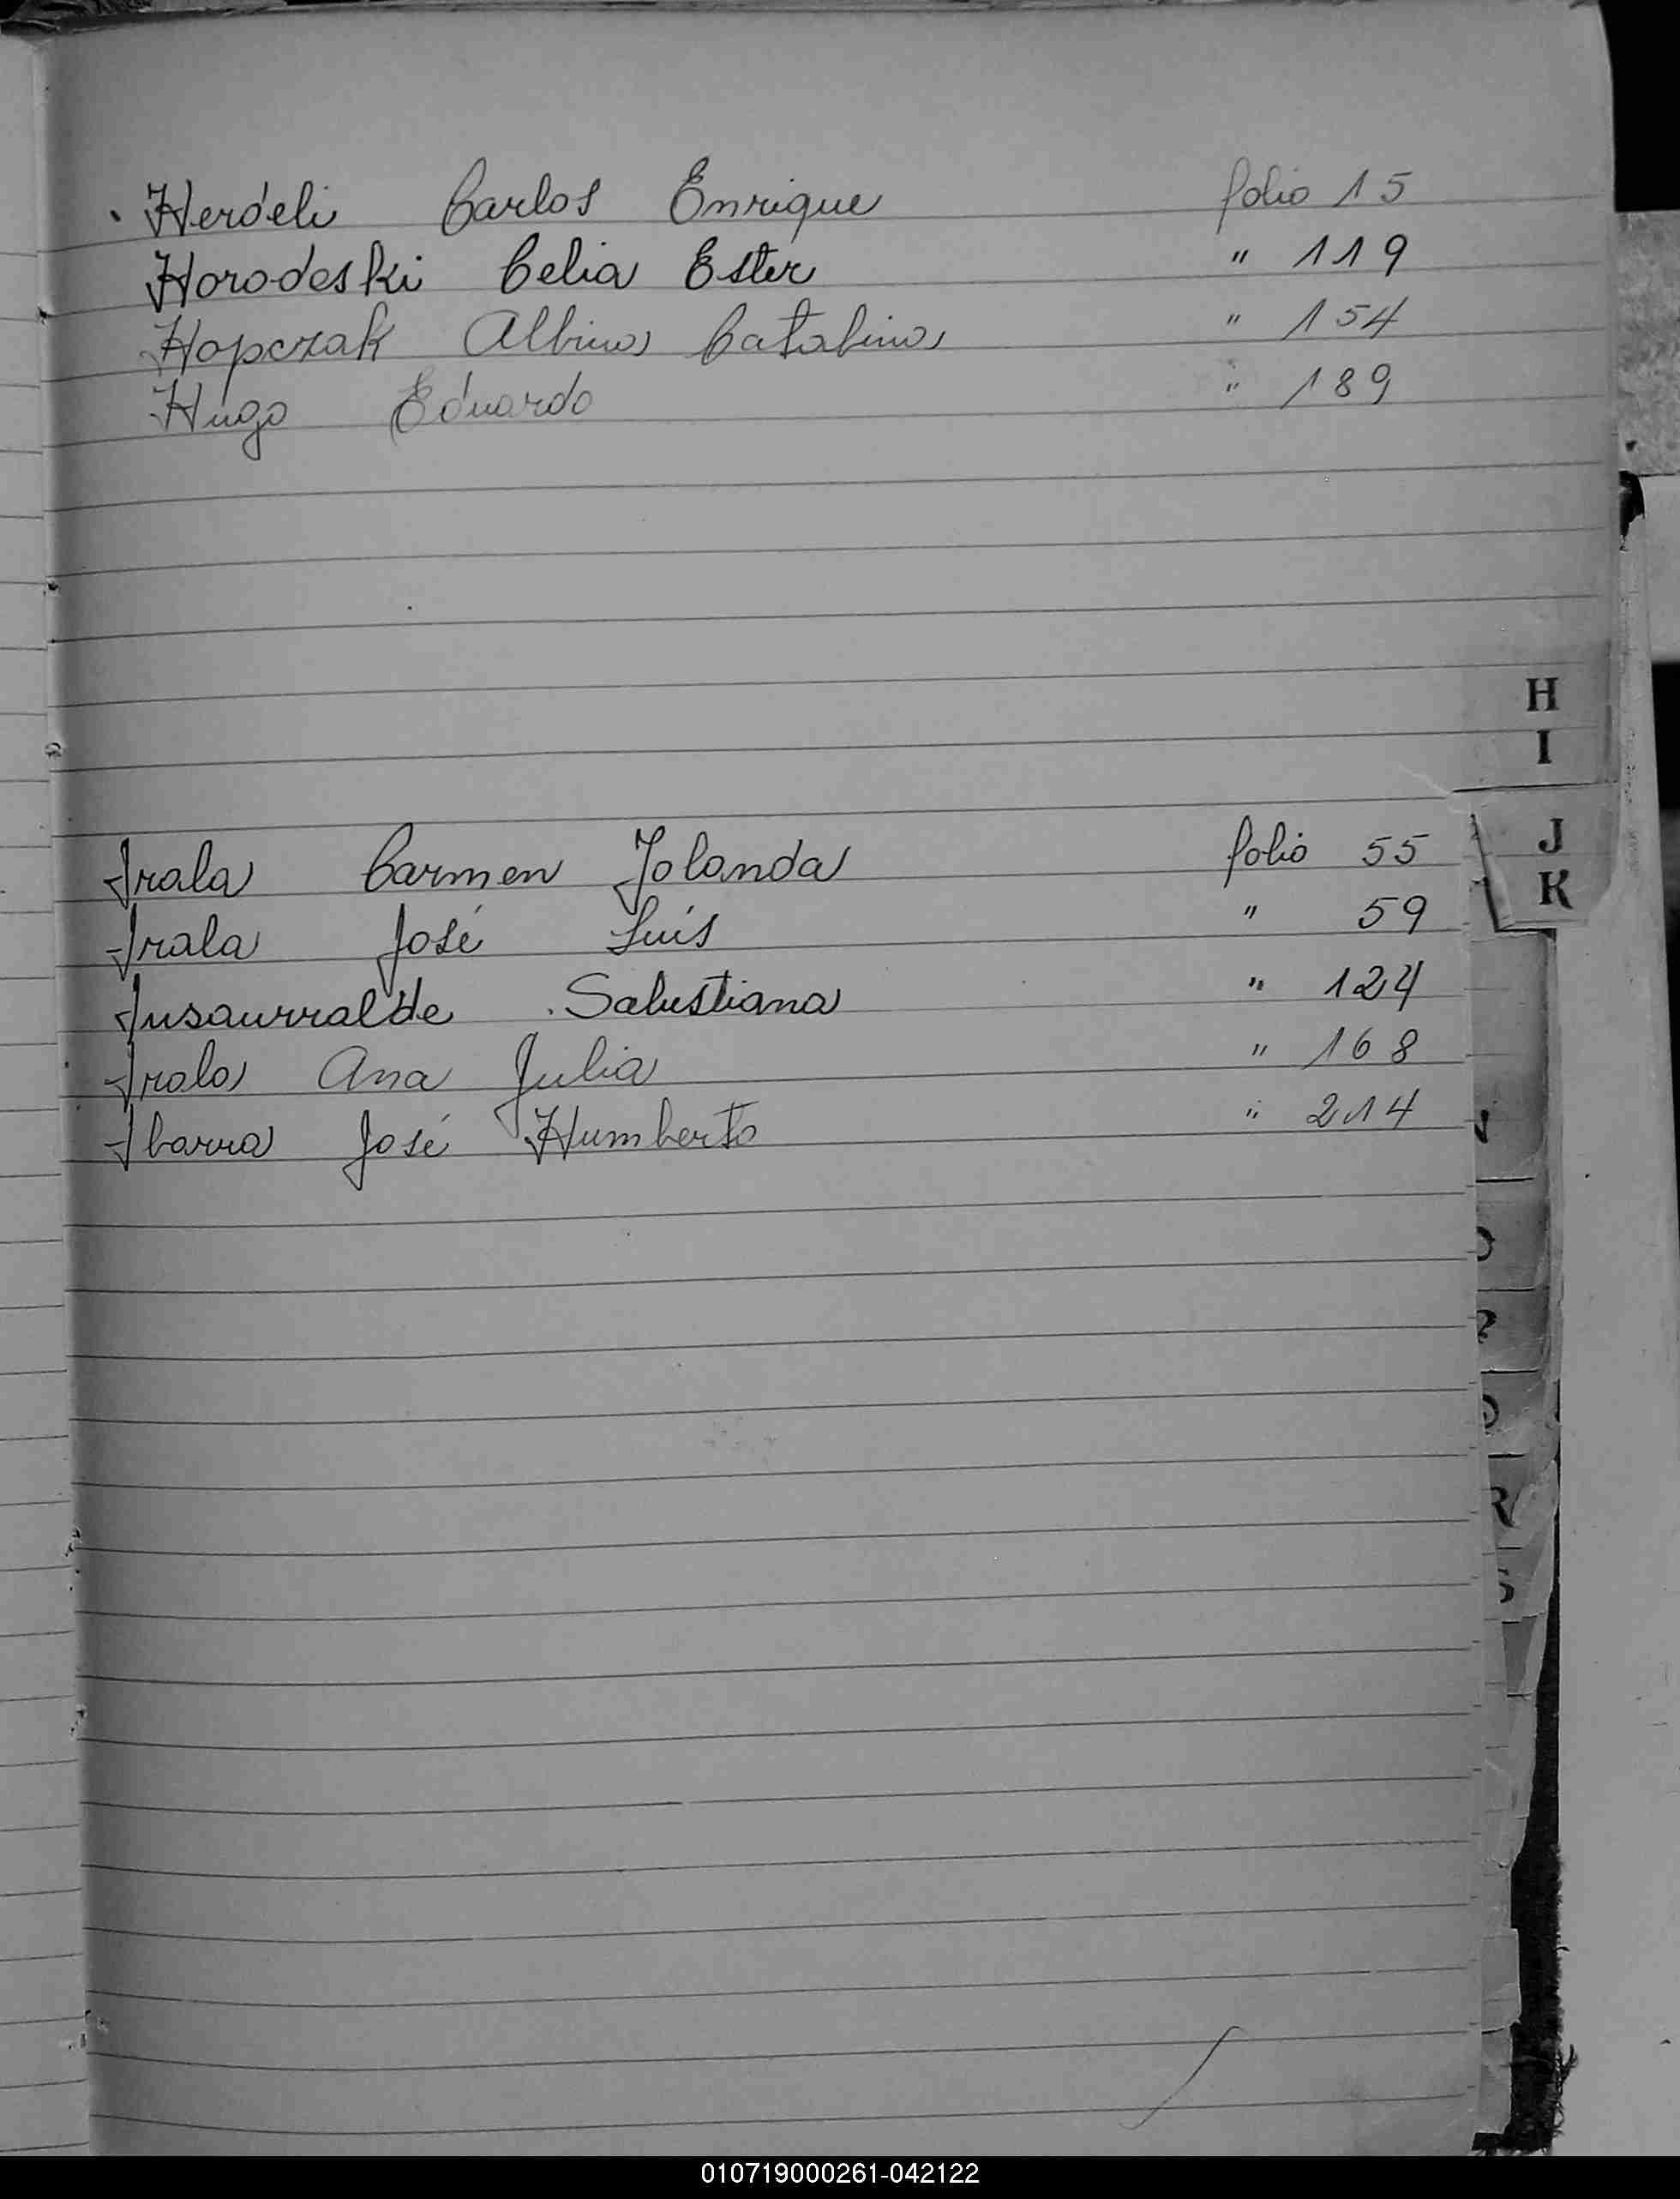 Herdeli Carlos Enrique folio 15
Horodeski Celia Ester " 119
Hopczak Albina Catalina " 154
Hugo Eduardo " 189
H
I
J
K
Irala Carmen Yolanda folio 55
Irala José Luis " 59
Insaurralde Salustiana " 124
Irala Ana Julia " 168
Ibarra José Humberto " 214
R
S
010719000261-042122